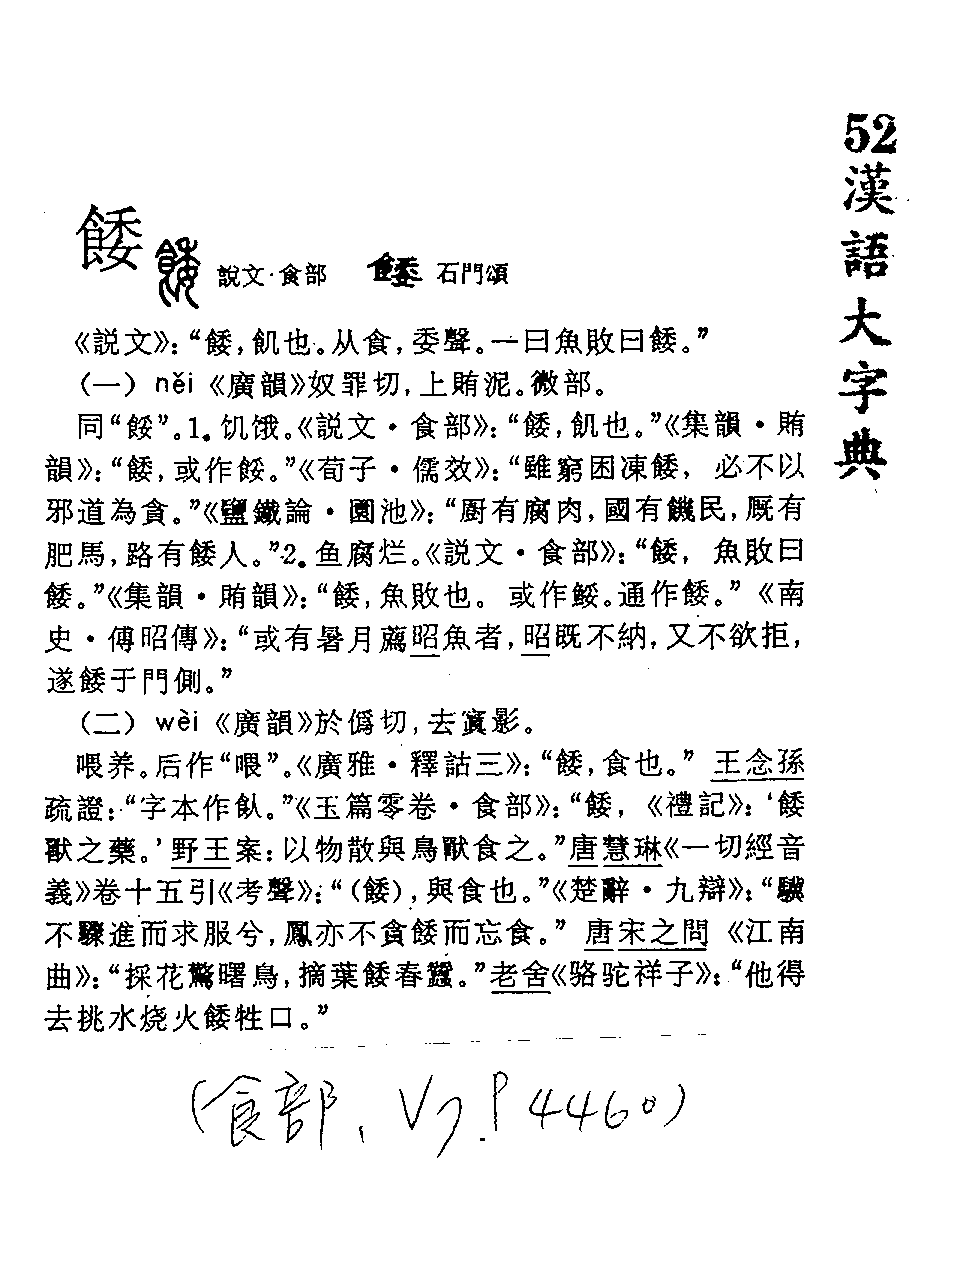 52漢語大字典
餧 餧 説文·食部 餧 石門頌
《説文》：“餧，飢也。从食，委聲。一曰魚敗曰餧。”
（一）něi《廣韻》奴罪切，上賄泥。微部。
同“餒”。1.饥饿。《説文·食部》：“餧，飢也。”《集韻·賄
韻》：“餧，或作餒。”《荀子·儒效》：“雖窮困凍餧，必不以
邪道為貪。”《鹽鐵論·園池》：“厨有腐肉，國有饑民，厩有
肥馬，路有餧人。”2.鱼腐烂。《説文·食部》：“餧，魚敗曰
餧。”《集韻·賄韻》：“餧，魚敗也。或作鮾。通作餧。”《南
史·傅昭傳》：“或有暑月薦昭魚者，昭既不納，又不欲拒，
遂餧于門側。”
（二）wèi《廣韻》於僞切，去寘影。
喂养。后作“喂”。《廣雅·釋詁三》：“餧，食也。”王念孫
疏證：“字本作飤。”《玉篇零卷·食部》：“餧，《禮記》：‘餧
獸之藥。’野王案：以物散與鳥獸食之。”唐慧琳《一切經音
義》卷十五引《考聲》：“（餧），與食也。”《楚辭·九辯》：“驥
不驟進而求服兮，鳳亦不貪餧而忘食。”唐宋之問《江南
曲》：“採花驚曙鳥，摘葉餧春蠶。”老舍《骆驼祥子》：“他得
去挑水烧火餧牲口。”
（食部，V7.P4460）